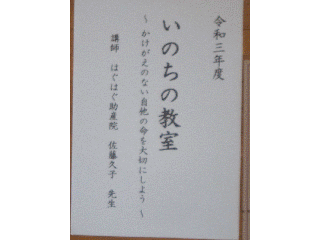 令和三年度
いのちの教室
~ かけがえのない自他の命を大切にしよう ~
講師 はぐはぐ助産院 佐藤久子 先生